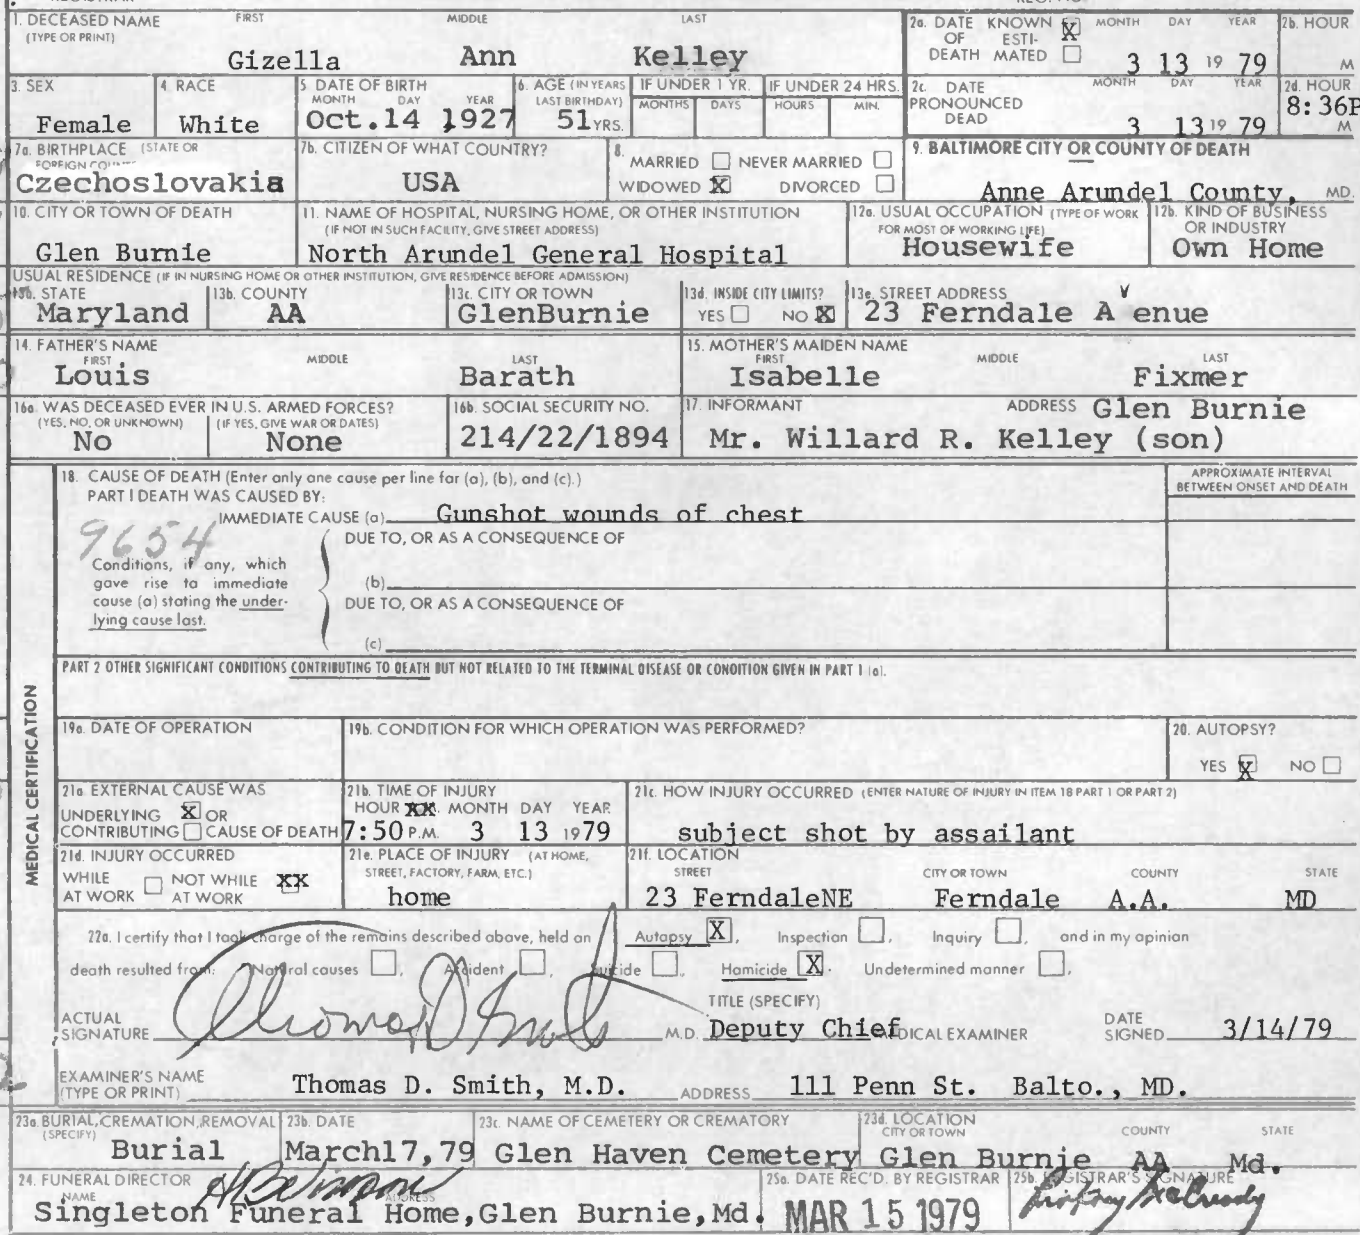 1. DECEASED NAME FIRST MIDDLE LAST
(TYPE OR PRINT)
Gizella Ann Kelley
2a. DATE KNOWN X MONTH DAY YEAR
OF ESTI-
DEATH MATED
3 13 19 79
2b. HOUR
M
3. SEX
Female
4. RACE
White
5 DATE OF BIRTH
MONTH DAY YEAR
Oct.14 1927
6. AGE (IN YEARS
LAST BIRTHDAY)
51 YRS.
IF UNDER 1 YR.
MONTHS DAYS
IF UNDER 24 HRS.
HOURS MIN.
2c. DATE MONTH DAY YEAR
PRONOUNCED
DEAD
3 13 19 79
2d. HOUR
8:36P
M
7a. BIRTHPLACE (STATE OR
FOREIGN
Czechoslovakia
7b. CITIZEN OF WHAT COUNTRY?
USA
8.
MARRIED NEVER MARRIED
WIDOWED X DIVORCED
9. BALTIMORE CITY OR COUNTY OF DEATH
Anne Arundel County, MD.
10. CITY OR TOWN OF DEATH
Glen Burnie
11. NAME OF HOSPITAL, NURSING HOME, OR OTHER INSTITUTION
(IF NOT IN SUCH FACILITY, GIVE STREET ADDRESS)
North Arundel General Hospital
12a. USUAL OCCUPATION (TYPE OF WORK
FOR MOST OF WORKING LIFE)
Housewife
12b. KIND OF BUSINESS
OR INDUSTRY
Own Home
USUAL RESIDENCE (IF IN NURSING HOME OR OTHER INSTITUTION, GIVE RESIDENCE BEFORE ADMISSION)
STATE
Maryland
13b. COUNTY
AA
13c. CITY OR TOWN
GlenBurnie
13d. INSIDE CITY LIMITS?
YES NO X
13e. STREET ADDRESS
23 Ferndale AVenue
14. FATHER'S NAME
FIRST MIDDLE LAST
Louis Barath
15. MOTHER'S MAIDEN NAME
FIRST MIDDLE LAST
Isabelle Fixmer
16a. WAS DECEASED EVER IN U.S. ARMED FORCES?
(YES, NO, OR UNKNOWN) (IF YES, GIVE WAR OR DATES)
No None
16b. SOCIAL SECURITY NO.
214/22/1894
17. INFORMANT ADDRESS Glen Burnie
Mr. Willard R. Kelley (son)
MEDICAL CERTIFICATION
18. CAUSE OF DEATH (Enter only one cause per line for (a), (b), and (c).)
PART I DEATH WAS CAUSED BY:
IMMEDIATE CAUSE (a) Gunshot wounds of chest
APPROXIMATE INTERVAL
BETWEEN ONSET AND DEATH
9654
DUE TO, OR AS A CONSEQUENCE OF
Conditions, if any, which
gave rise to immediate
cause (a) stating the under-
lying cause last.
(b)
DUE TO, OR AS A CONSEQUENCE OF
(c)
PART 2 OTHER SIGNIFICANT CONDITIONS CONTRIBUTING TO DEATH BUT NOT RELATED TO THE TERMINAL DISEASE OR CONDITION GIVEN IN PART 1 (a).
19a. DATE OF OPERATION
19b. CONDITION FOR WHICH OPERATION WAS PERFORMED?
20. AUTOPSY?
YES X NO
21a. EXTERNAL CAUSE WAS
UNDERLYING X OR
CONTRIBUTING CAUSE OF DEATH
21b. TIME OF INJURY
HOUR XX MONTH DAY YEAR
7:50 P.M. 3 13 1979
21c. HOW INJURY OCCURRED (ENTER NATURE OF INJURY IN ITEM 18 PART 1 OR PART 2)
subject shot by assailant
21d. INJURY OCCURRED
WHILE NOT WHILE XX
AT WORK AT WORK
21e. PLACE OF INJURY (AT HOME,
STREET, FACTORY, FARM, ETC.)
home
21f. LOCATION
STREET CITY OR TOWN COUNTY STATE
23 FerndaleNE Ferndale A.A. MD
22a. I certify that I took charge of the remains described above, held an Autopsy X, Inspection , Inquiry , and in my opinion
death resulted from: Natural causes , Accident , Suicide , Homicide X. Undetermined manner ,
TITLE (SPECIFY)
ACTUAL
SIGNATURE Thomas D Smith M.D. Deputy Chief MEDICAL EXAMINER
DATE
SIGNED 3/14/79
EXAMINER'S NAME
(TYPE OR PRINT) Thomas D. Smith, M.D. ADDRESS 111 Penn St. Balto., MD.
23a. BURIAL, CREMATION, REMOVAL
(SPECIFY)
Burial
23b. DATE
March17,79
23c. NAME OF CEMETERY OR CREMATORY
Glen Haven Cemetery
23d. LOCATION
CITY OR TOWN COUNTY STATE
Glen Burnie AA Md.
24. FUNERAL DIRECTOR
NAME ADDRESS
Singleton Funeral Home,Glen Burnie,Md.
25a. DATE REC'D. BY REGISTRAR
MAR 15 1979
25b. REGISTRAR'S SIGNATURE